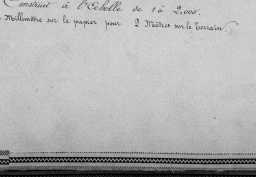 Construit à l'Echelle de 1 à 2.000.
Millimètre sur le papier pour 2 Mètres sur le Terrain.